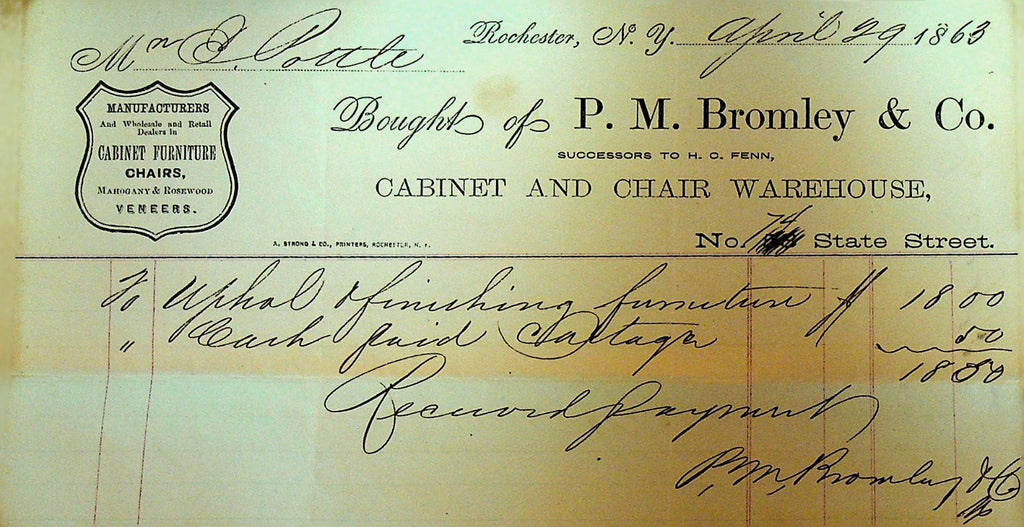 Rochester, N. Y. April 29 1863
Mr E. Pottle
MANUFACTURERS
And Wholesale and Retail
Dealers in
CABINET FURNITURE
CHAIRS,
MAHOGANY & ROSEWOOD
VENEERS.
Bought of P. M. Bromley & Co.
SUCCESSORS TO H. C. FENN,
CABINET AND CHAIR WAREHOUSE,
No. 74 State Street.
A. STRONG & CO., PRINTERS, ROCHESTER, N. Y.
To Uphol & finishing furniture $ 18 00
" Cash paid Cartage 50
18 50
Received payment
P. M. Bromley & Co